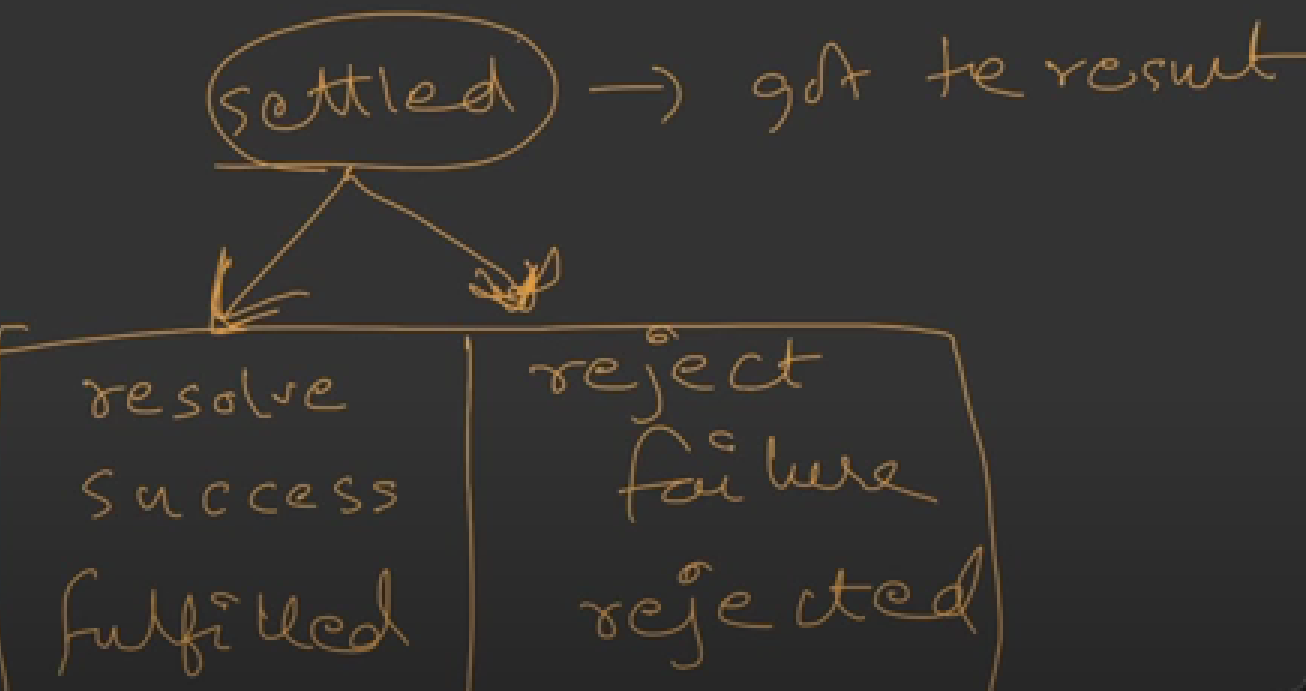 settled → got te result
resolve
reject
success
failure
fulfilled
rejected